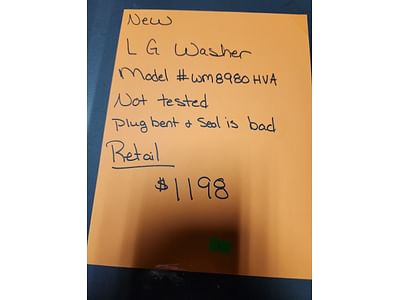 New
LG Washer
Model # WM8980HVA
Not tested
Plug bent & Seal is bad
Retail
$1198